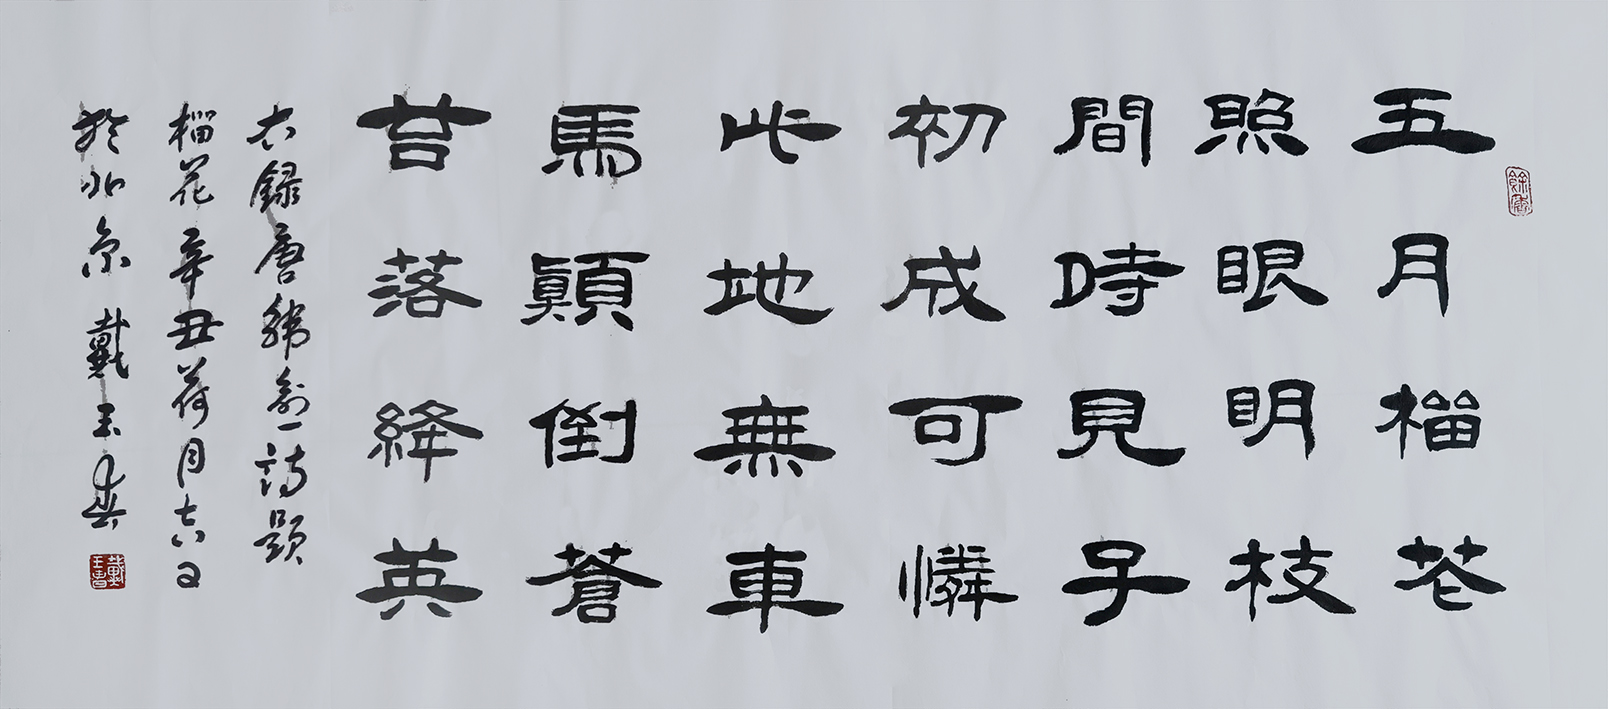 五月榴花
照眼明枝
間時見子
初成可憐
此地無車
馬顛倒蒼
苔落絳英
右録唐韓愈詩題
榴花辛丑荷月日
於北京戴玉